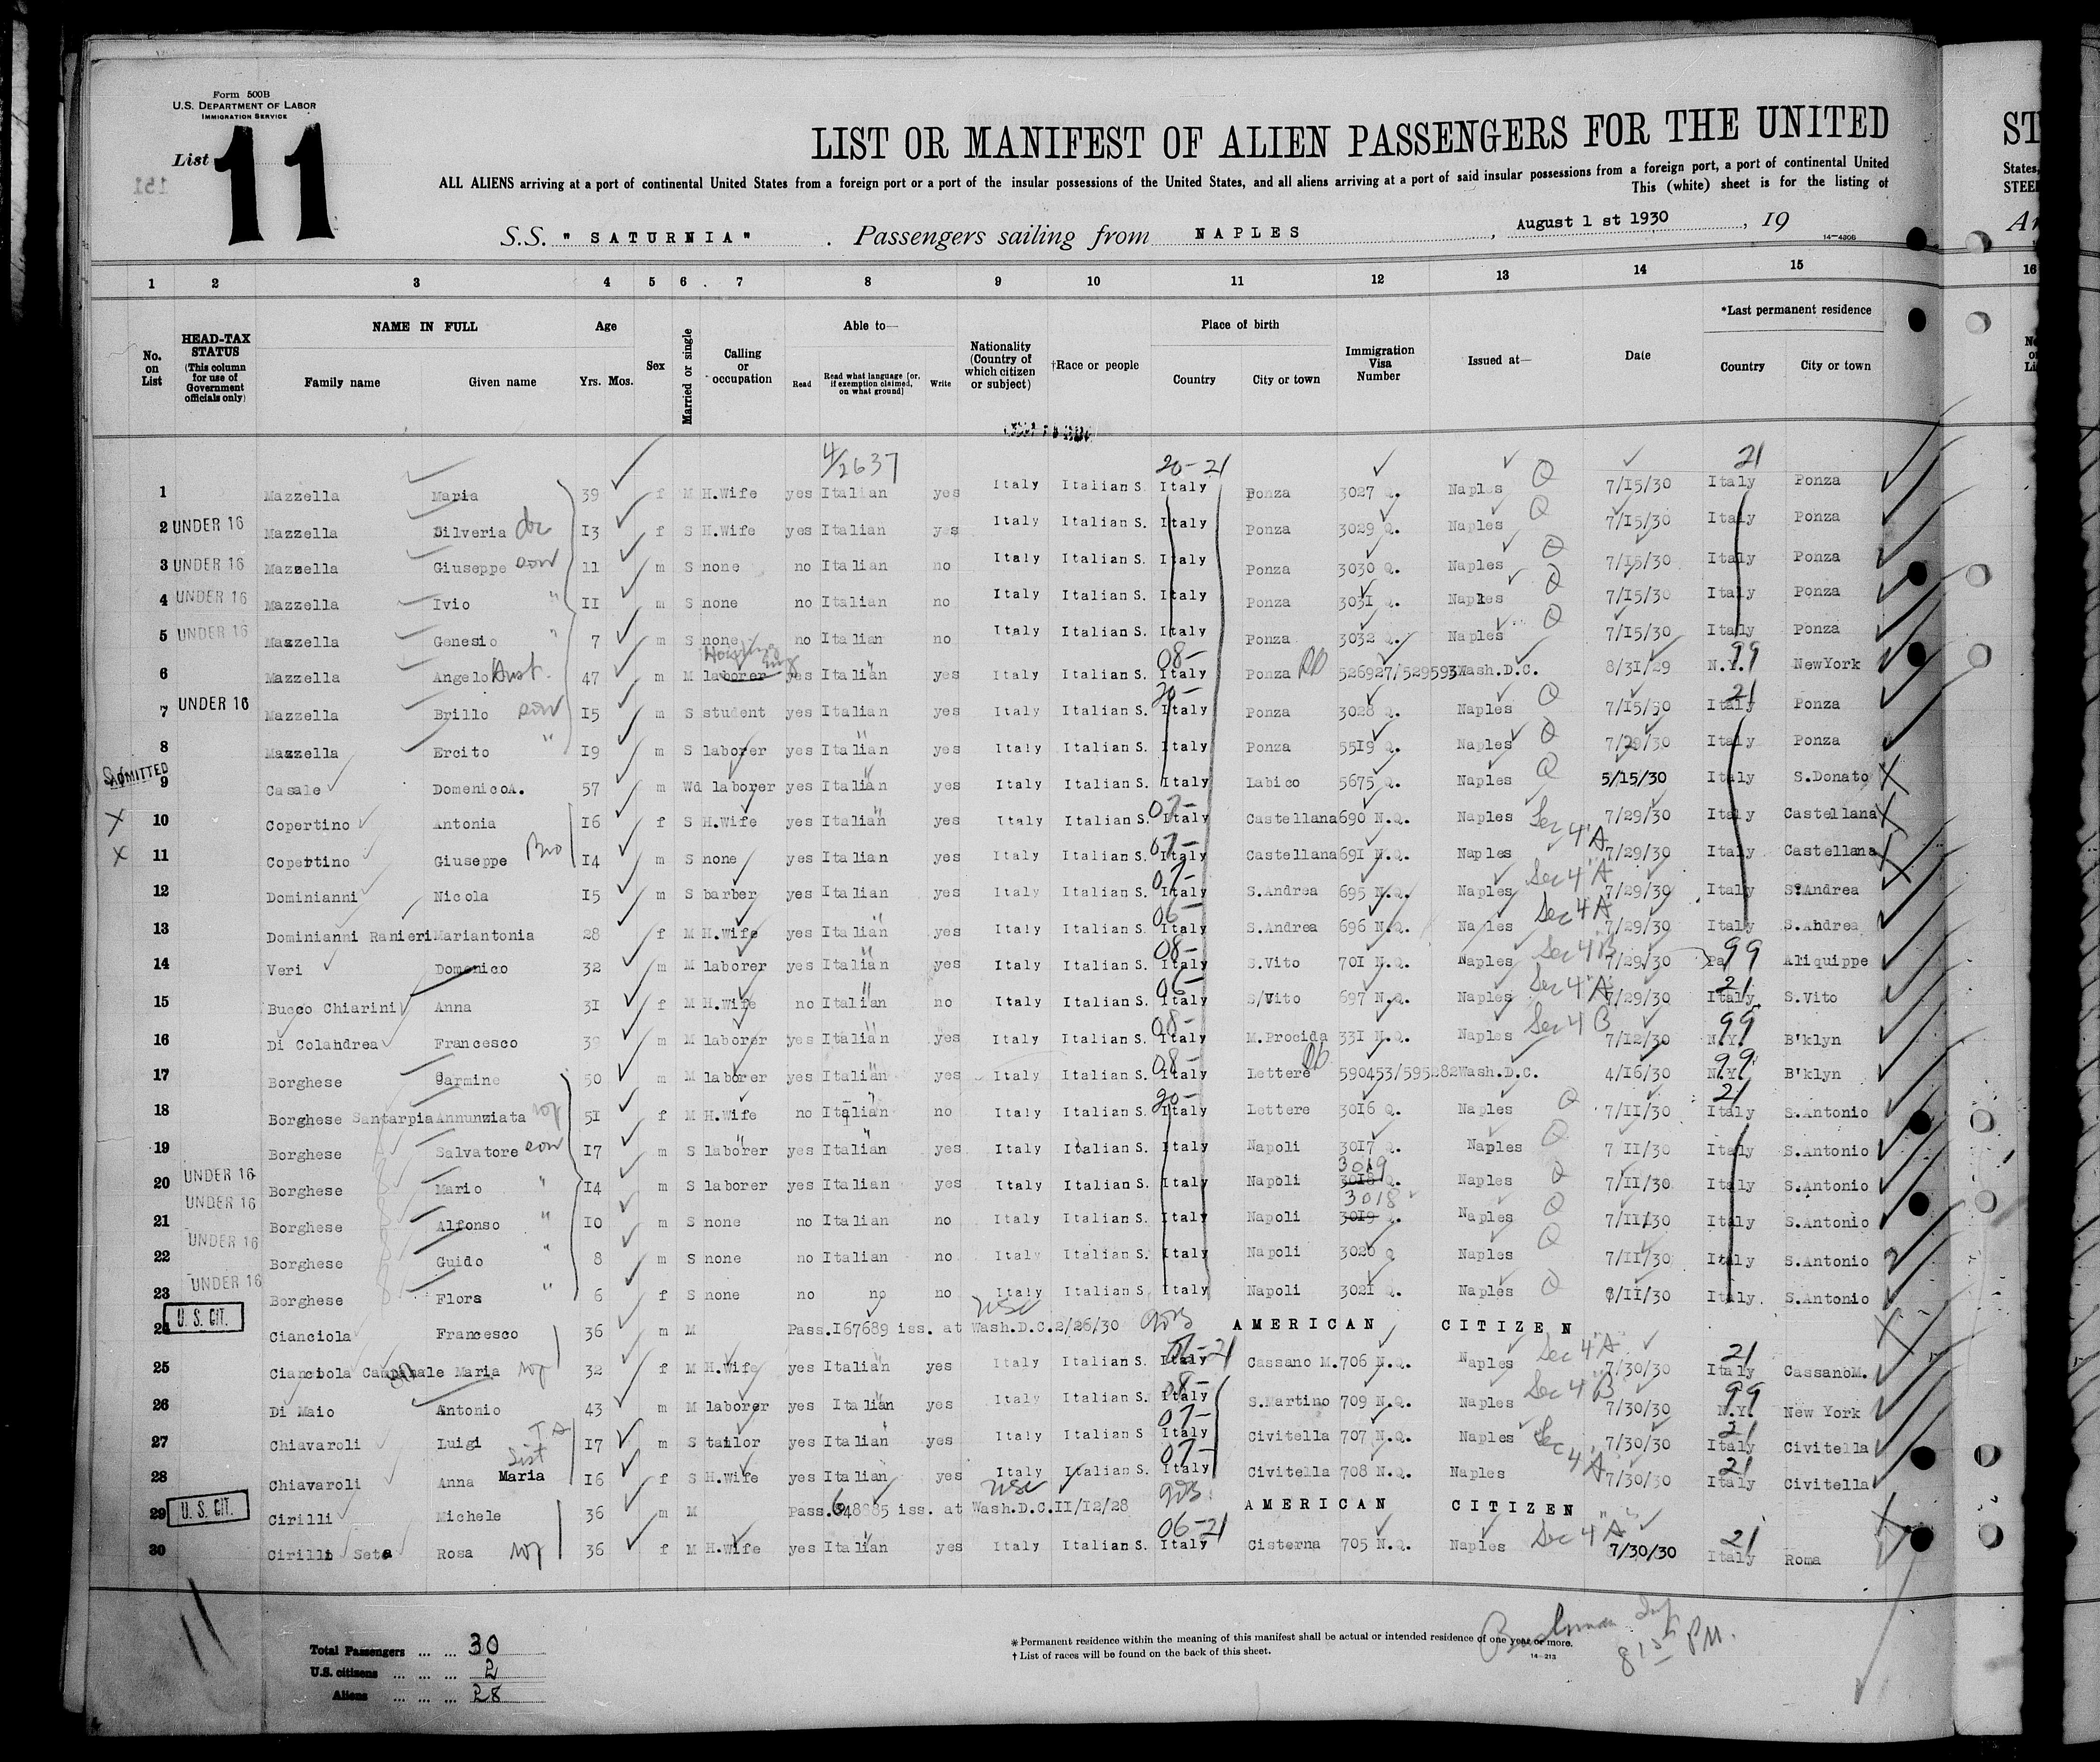 Form 500B
U.S. DEPARTMENT OF LABOR
IMMIGRATION SERVICE
List 11
151
LIST OR MANIFEST OF ALIEN PASSENGERS FOR THE UNITED
ALL ALIENS arriving at a port of continental United States from a foreign port or a port of the insular possessions of the United States, and all aliens arriving at a port of said insular possessions from a foreign port, a port of continental United
This (white) sheet is for the listing of
S.S. "SATURNIA" . Passengers sailing from NAPLES , August 1 st 1930 , 19
14—430B
ST
States,
STEE
16
1 2 3 4 5 6 7 8 9 10 11 12 13 14 15
No. on List
HEAD-TAX STATUS (This column for use of Government officials only)
NAME IN FULL
Family name Given name
Age
Yrs. Mos.
Sex
Married or single
Calling or occupation
Able to—
Read Read what language (or, if exemption claimed, on what ground) Write
Nationality (Country of which citizen or subject)
†Race or people
Place of birth
Country City or town
Immigration Visa Number
Issued at—
Date
*Last permanent residence
Country City or town
4/2637 20-21 21
1 Mazzella Maria 39 f M H.Wife yes Italian yes Italy Italian S. Italy Ponza 3027 Q. Naples Q 7/15/30 Italy Ponza
2 UNDER 16 Mazzella Silveria 13 f S H.Wife yes Italian yes Italy Italian S. Italy Ponza 3029 Q. Naples Q 7/15/30 Italy Ponza
3 UNDER 16 Mazzella Giuseppe son 11 m S none no Italian no Italy Italian S. Italy Ponza 3030 Q. Naples Q 7/15/30 Italy Ponza
4 UNDER 16 Mazzella Ivio " 11 m S none no Italian no Italy Italian S. Italy Ponza 3031 Q. Naples Q 7/15/30 Italy Ponza
5 UNDER 16 Mazzella Genesio " 7 m S none no Italian no Italy Italian S. Italy Ponza 3032 Q. Naples Q 7/15/30 Italy Ponza
6 Mazzella Angelo 47 m M laborer yes Italian yes Italy Italian S. 08- Italy Ponza 526927/529593 Wash.D.C. 8/31/29 N.Y. 99 NewYork
7 UNDER 16 Mazzella Brillo son 15 m S student yes Italian yes Italy Italian S. 20- Italy Ponza 3028 Q. Naples Q 7/15/30 21 Italy Ponza
8 Mazzella Ercito " 19 m S laborer yes Italian yes Italy Italian S. Italy Ponza 5519 Q. Naples Q 7/29/30 Italy Ponza
ADMITTED
9 Casale DomenicoA. 57 m Wd laborer yes Italian yes Italy Italian S. Italy Labico 5675 Q. Naples Q 5/15/30 Italy S.Donato
X 10 Copertino Antonia 16 f S H.Wife yes Italian yes Italy Italian S. 07- Italy Castellana 690 N.Q. Naples Sec 4 "A" 7/29/30 Italy Castellana
X 11 Copertino Giuseppe Bro 14 m S none yes Italian yes Italy Italian S. 07- Italy Castellana 691 N.Q. Naples Sec 4 "A" 7/29/30 Italy Castellana
12 Dominianni Nicola 15 m S barber yes Italian yes Italy Italian S. 07- Italy S.Andrea 695 N.Q. Naples Sec 4 A 7/29/30 Italy S.Andrea
13 Dominianni Ranieri Mariantonia 28 f M H.Wife yes Italian yes Italy Italian S. 06- Italy S.Andrea 696 N.Q. Naples 7/29/30 Italy S.Andrea
14 Veri Domenico 32 m M laborer yes Italian yes Italy Italian S. 08- Italy S.Vito 701 N.Q. Naples Sec 4 "B" 7/29/30 Pa 99 Aliquippe
15 Bucco Chiarini Anna 31 f M H.Wife no Italian no Italy Italian S. 06- Italy S/Vito 697 N.Q. Naples Sec 4 "A" 7/29/30 21 Italy S.Vito
16 Di Colandrea Francesco 39 m M laborer yes Italian yes Italy Italian S. 08- Italy M.Procida 331 N.Q. Naples Sec 4 B 7/12/30 99 N.Y. B'klyn
17 Borghese Carmine 50 m M laborer yes Italian yes Italy Italian S. 08- Italy Lettere 590453/595282 Wash.D.C. 4/16/30 99 N.Y. B'klyn
18 Borghese Santarpia Annunziata 51 f M H.Wife no Italian no Italy Italian S. 20- Italy Lettere 3016 Q. Naples Q 7/11/30 21 Italy S.Antonio
19 Borghese Salvatore son 17 m S laborer yes Italian yes Italy Italian S. Italy Napoli 3017 Q. Naples Q 7 11/30 Italy S.Antonio
20 UNDER 16 Borghese Mario " 14 m S laborer yes Italian yes Italy Italian S. Italy Napoli 3019 3018 Q. Naples Q 7/11/30 Italy S.Antonio
21 UNDER 16 Borghese Alfonso " 10 m S none no Italian no Italy Italian S. Italy Napoli 3018 3019 Q. Naples Q 7/11/30 Italy S.Antonio
22 UNDER 16 Borghese Guido " 8 m S none no Italian no Italy Italian S. Italy Napoli 3020 Q Naples Q 7/11/30 Italy S.Antonio
23 UNDER 16 Borghese Flora " 6 f S none no no no Italy Italian S. Italy Napoli 3021 Q. Naples Q 7/11/30 Italy. S.Antonio
24 U.S. CIT. Cianciola Francesco 36 m M Pass.167689 iss. at Wash.D.C.2/26/30 USC AMERICAN CITIZEN
25 Cianciola Campanale Maria 32 f M H.Wife yes Italian yes Italy Italian S. 06-21 Italy Cassano M. 706 N.Q. Naples Sec 4 "A" 7/30/30 21 Italy CassanoM.
26 Di Maio Antonio 43 m M laborer yes Italian yes Italy Italian S. 08- Italy S.Martino 709 N.Q. Naples Sec 4 B 7/30/30 99 N.Y. New York
27 Chiavaroli Luigi 17 m S tailor yes Italian yes Italy Italian S 07- Italy Civitella 707 N.Q. Naples Sec 4 A 7/30/30 21 Italy Civitella
28 Chiavaroli Anna Maria Sist 16 f S H.Wife yes Italian yes Italy Italian S. 07- Italy Civitella 708 N.Q. Naples 7/30/30 21 Italy Civitella
29 U.S. CIT. Cirilli Michele 36 m M Pass.648885 iss. at Wash.D.C.11/12/28 USC AMERICAN CITIZEN
30 Cirilli Seta Rosa 36 f M H.Wife yes Italian yes Italy Italian S. 06-21 Italy Cisterna 705 N.Q. Naples Sec 4 "A" 7/30/30 21 Italy Roma
Total Passengers ... ... 30
U.S. citizens ... ... ... 2
Aliens ... ... ... 28
* Permanent residence within the meaning of this manifest shall be actual or intended residence of one year or more.
† List of races will be found on the back of this sheet.
14—213
PM.